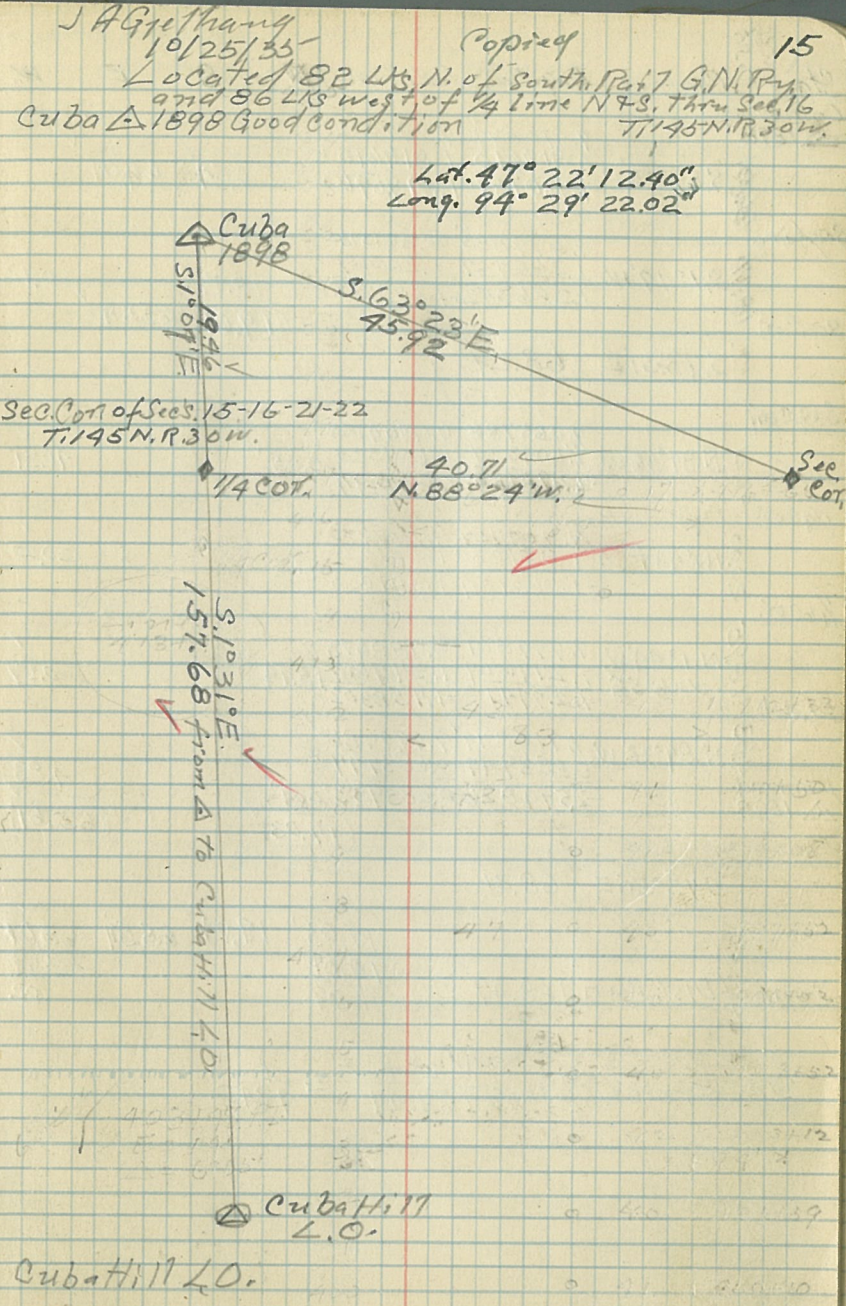 J A Gjelhaug
10/25/35
Copied
15
Located 82 Lks. N. of South Rail G.N. Ry.
and 86 Lks west of 1/4 line N & S. thru Sec. 16
Cuba △ 1898 Good condition
T. 145 N. R. 30 W.
Lat. 47° 22' 12.40"
Long. 94° 29' 22.02"
Cuba
1898
S. 63° 23' E.
45.92
19.46
S. 1° 07' E.
Sec. Cor. of Sec's. 15-16-21-22
T. 145 N. R. 30 W.
1/4 Cor.
40.71
N. 88° 24' W.
Sec.
Cor.
S. 1° 31° E.
157.68 from △ to Cuba Hill L.O.
Cuba Hill
L.O.
Cuba Hill L.O.